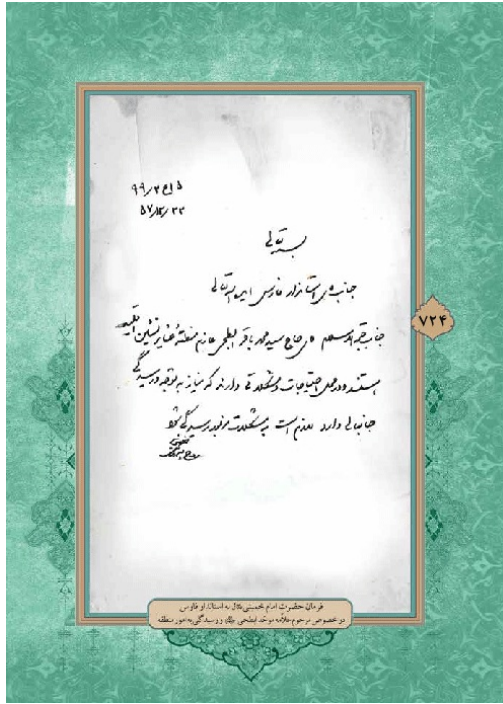 ۱۵ ع ۲/ ۹۹
۵۷/۱۲/۲۳
بسمه تعالی
جناب آقای استاندار فارس ایده الله تعالی
جناب حجةالاسلام آقای حاج سید محمد باقر ابطحی عازم منطقهٔ عشایر نشین اقلید
هستند و در محل احتیاجات و مشکلاتی دارند که نیاز به توجه و رسیدگی
جنابعالی دارد لازم است به مشکلات مزبور رسیدگی شود
۷۲۴
فرمان حضرت امام خمینی به استاندار فارس
در خصوص مرحوم علامه موحد ابطحی و رسیدگی به امور منطقه